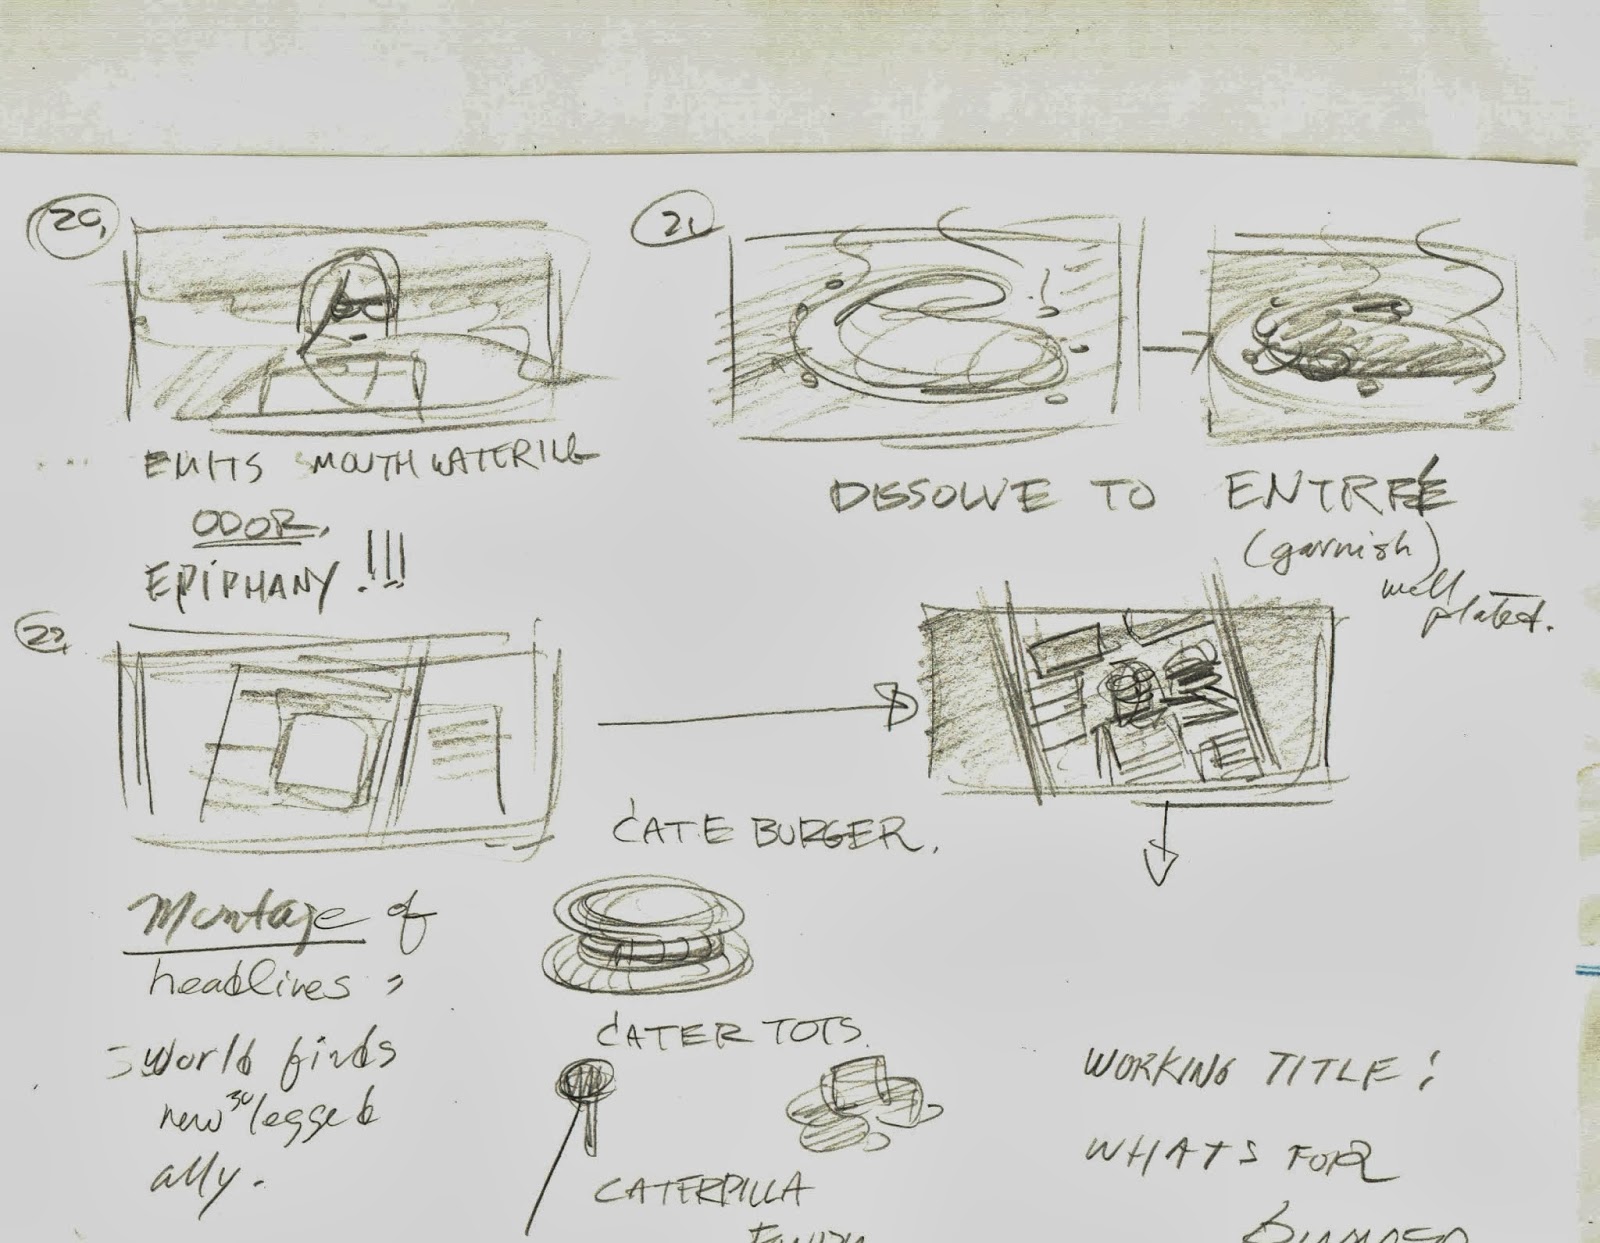 20.
EMITS MOUTHWATERING
ODOR.
EPIPHANY!!!
21
DISSOLVE TO ENTREÉ
(garnish)
well
plated.
22.
Montage of
headlines:
World finds
new 30 legged
ally.
CATE BURGER.
CATER TOTS.
CATERPILLA
WORKING TITLE:
WHATS FOR